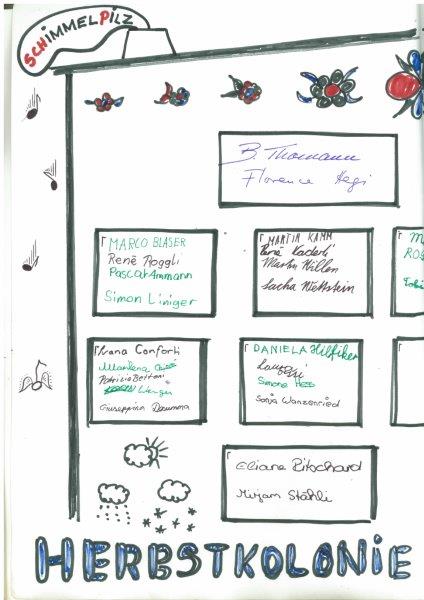 SCHIMMELPILZ
B. Thomann
Florence Hegi
MARCO BLASER
René Roggli
Pascal Ammann
Simon Liniger
MARTIN KAMM
René Kaderli
Martin Willen
Sacha Wettstein
Ivana Conforti
Marilena
Patrizia Bettoni
Liniger
Giuseppina
DANIELA Hilfiker
Simone Hess
Sonja Wanzenried
Eliane Ritschard
Mirjam Stähli
HERBSTKOLONIE